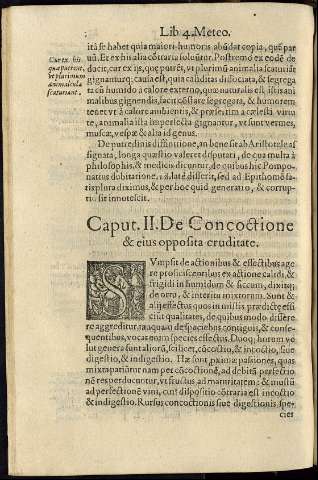 Lib 4. Meteo.
Cur ex his
quæ putrent,
vt plurimum
animalcula
scaturiant.
ità se habet quia maiori humoris abũdat copia, quẽ par
uũ. Et ex his alia cõtraria soluũtur. Postremò ex eodẽ de
ducit, cur ex ijs, quę putrẽt, vt plurimũ animalia scaturiãt
gignanturq; causa est, quia caliditas dissociata, & segrega
ta cũ humido à calore externo, quæ naturalis est, istis ani
malibus gignendis, facit cõstare segregata, & humorem
tenet vt à calore ambientis, & præsertim à cælesti virtu
te, animalia ista imperfecta gignantur, vt sunt vermes,
muscæ, vespæ & alia id genus.
De putredinis diffinitione, an bene sit ab Aristotele as
signata, longa quæstio valeret disputari, de qua multa à
philosophis, & medicis dicuntur, de quibus hic Pompo-
natius dubitatione. 12. latè disserit, sed ad Epithomẽ sa-
tis plura diximus, & per hoc quid generatio, & corrup-
tio sit innotescit.
Caput. II. De Concoctione
& eius opposita cruditate.
SVmpsit de actionibus & effectibus age
re proficiscentibus ex actione calidi, &
frigidi in humidum & siccum, dixit
de ortu, & interitu mixtorum. Sunt &
alij effectus quos in mistis prædictę effi
ciũt qualitates, de quibus modò differe
re aggreditur tanquam de speciebus contiguis, & conse-
quentibus, vocat eorum species effectus. Duoq; horum ve
lut genera sunt aliorũ, scilicet, cõcoctio, & incoctio, siue
digestio, & indigestio. Hæ sunt primæ passiones, quas
mixta patiũtur nam per cõcoctionẽ, ad debitũ perfectio
nẽ res perducuntur, vt fructus ad maturitatem: & mustũ
ad perfectionẽ vini, cuiᵒ dispositio cõtraria est incoctio
& indigestio. Rursus concoctionis siue digestionis spe-
cies